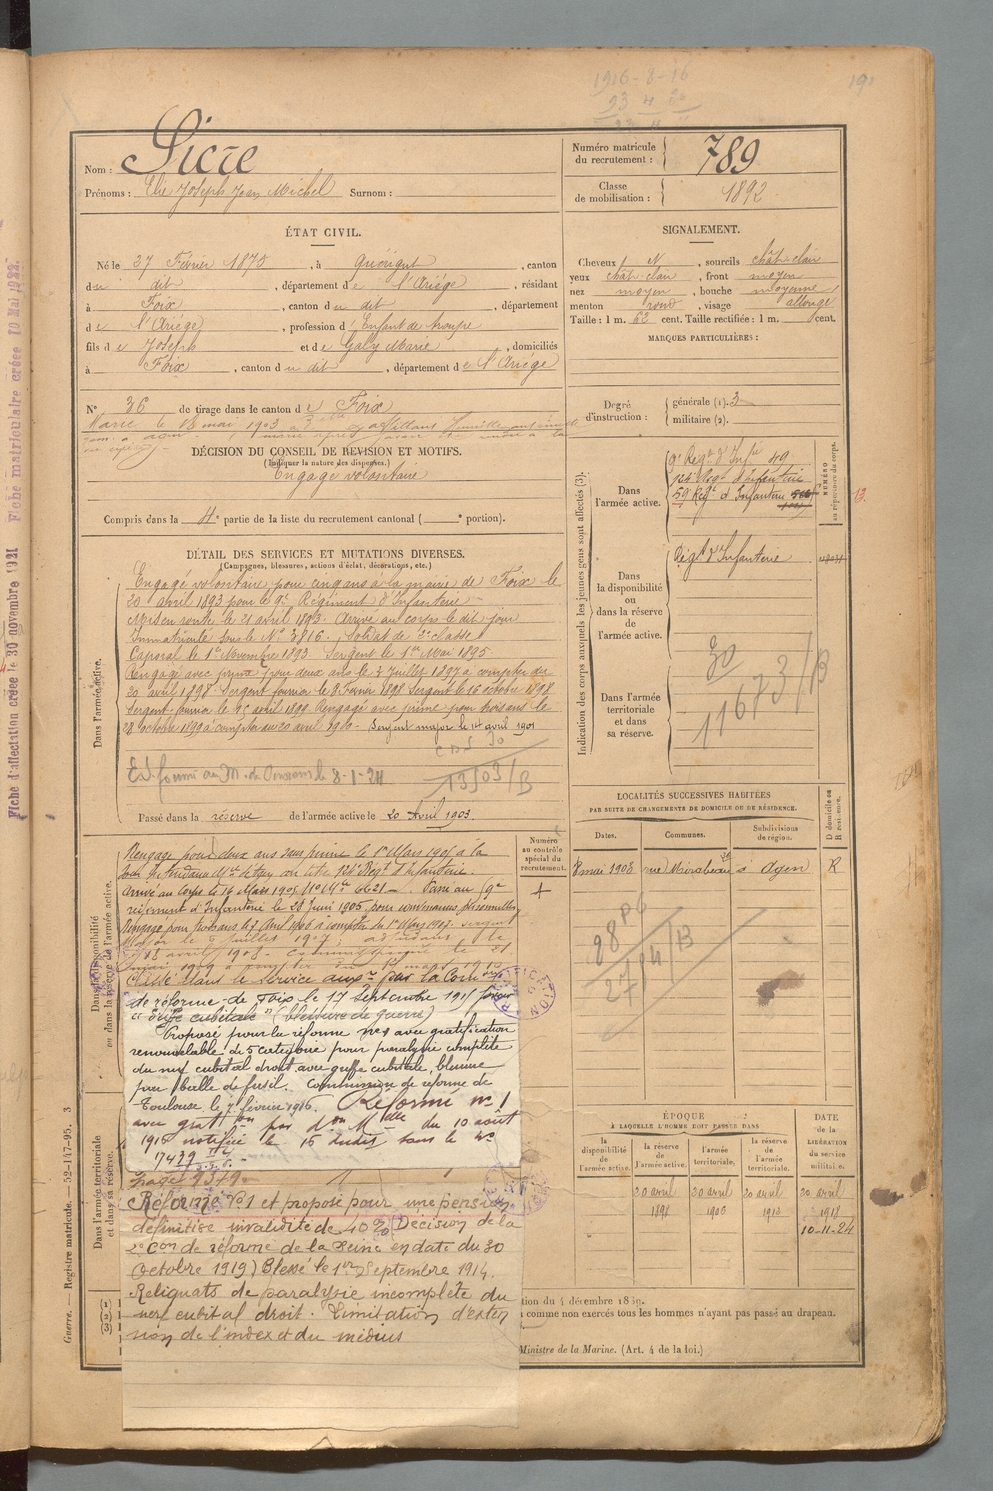 191
1916 - 8 - 16
Numéro matricule du recrutement : 789
Classe de mobilisation : 1892
Nom : Sicre
Prénoms : Elie Joseph Jean Michel Surnom :
ÉTAT CIVIL.
Né le 27 Février 1875, à Quérigut, canton
du dit, département de l'Ariége, résidant
à Foix, canton du dit, département
de l'Ariége, profession d'Enfant de troupe
fils de Joseph et de Galy Marie, domiciliés
à Foix, canton du dit, département de l'Ariége
N° 36 de tirage dans le canton de Foix
Marié le 18 mai 1903 à
DÉCISION DU CONSEIL DE RÉVISION ET MOTIFS.
(Indiquer la nature des dispenses.)
Engagé volontaire
Compris dans la 4e partie de la liste du recrutement cantonal ( e portion).
SIGNALEMENT.
Cheveux N, sourcils chât-clair
yeux chât-clair, front moyen
nez moyen, bouche moyenne
menton rond, visage allongé
Taille : 1 m. 62 cent. Taille rectifiée : 1 m. cent.
MARQUES PARTICULIÈRES :
Degré d'instruction : générale (1). 3
militaire (2).
DÉTAIL DES SERVICES ET MUTATIONS DIVERSES.
(Campagnes, blessures, actions d'éclat, décorations, etc.)
Dans l'armée active.
Engagé volontaire pour cinq ans à la mairie de Foix le
20 avril 1893 pour le 9e Régiment d'Infanterie
Mis en route le 21 avril 1893. Arrivé au corps le dit jour
Immatriculé sous le N° 3816. Soldat de 2e classe
Caporal le 1er Novembre 1893. Sergent le 1er Mai 1895
Rengagé avec prime pour deux ans le 3 Juillet 1897 à compter du
20 avril 1898. Sergent fourrier le 8 Février 1898 Sergent le 16 octobre 1898
Sergent fourrier le 25 avril 1899. Rengagé avec prime pour trois ans le
28 octobre 1899 à compter du 20 avril 1900. Sergent major le 14 avril 1901
Ed. fourni au M. de Pensions le 8-1-24
13503/B
Passé dans la réserve de l'armée active le 20 Avril 1903.
Indication des corps auxquels les jeunes gens sont affectés (3).
NUMÉRO au répertoire du corps.
Dans l'armée active.
9e Régt d'Infie 49
124 Régt d'Infanterie
59 Régt d'Infanterie
13.
Dans la disponibilité ou dans la réserve de l'armée active.
Régt d'Infanterie
Dans l'armée territoriale et dans sa réserve.
30
11673/B
LOCALITÉS SUCCESSIVES HABITÉES
PAR SUITE DE CHANGEMENTS DE DOMICILE OU DE RÉSIDENCE.
Dates. Communes. Subdivisions de région. D domicile ou R résidence.
8 mai 1903 rue Mirabeau à Agen R
28 P6
27/4/B
Numéro au contrôle spécial du recrutement.
Dans la disponibilité ou dans la réserve de l'armée active.
Rengagé pour deux ans sans prime le 1er Mars 1905 à la
arrivé au corps le 16 Mars 1905 N° Mle 6621. Passé au 59e
régiment d'Infanterie le 28 Juin 1905, pour convenances personnelles
Rengagé pour trois ans le 7 Avril 1906 à compter du 1er Mars 1907. Sergent
Major le 9 Juillet 1907, adjudant le
Classé dans le service auxre par la Comon
de réforme de Foix le 17 Septembre 1915 pour
"Griffe cubitale" (blessure de guerre)
Proposé pour la réforme n° 1 avec gratification
renouvelable de 5 catégorie pour paralysie complète
du nerf cubital droit avec griffe cubitale, blessure
par balle de fusil. Commission de réforme de
Toulouse le 7 février 1916. Réformé n° 1
avec gratton par don Mlle du 10 août
1916 notifiée le 16 dudit sous le n°
7439
Dans l'armée territoriale et dans sa réserve.
Réformé N° 1 et proposé pour une pension
définitive invalidité de 40 % (Décision de la
2e Con de réforme de la Seine en date du 30
Octobre 1919) Blessé le 1er Septembre 1914.
Reliquats de paralysie incomplète du
nerf cubital droit. Limitation d'exten
sion de l'index et du médius
ÉPOQUE
À LAQUELLE L'HOMME DOIT PASSER DANS
la disponibilité de l'armée active. la réserve de l'armée active. l'armée territoriale. la réserve de l'armée territoriale.
DATE de la LIBÉRATION du service militaire.
20 avril 1896 20 avril 1906 20 avril 1912 20 avril 1918
10-11-24
(1) (2) (3)
tion du 4 décembre 1889.
comme non exercés tous les hommes n'ayant pas passé au drapeau.
Ministre de la Marine. (Art. 4 de la loi.)
Guerre. — Registre matricule. — 52-147-95. 3
Fiche d'affectation créée le 30 novembre 1921 Fiche matriculaire créée 10 Mai 1922.